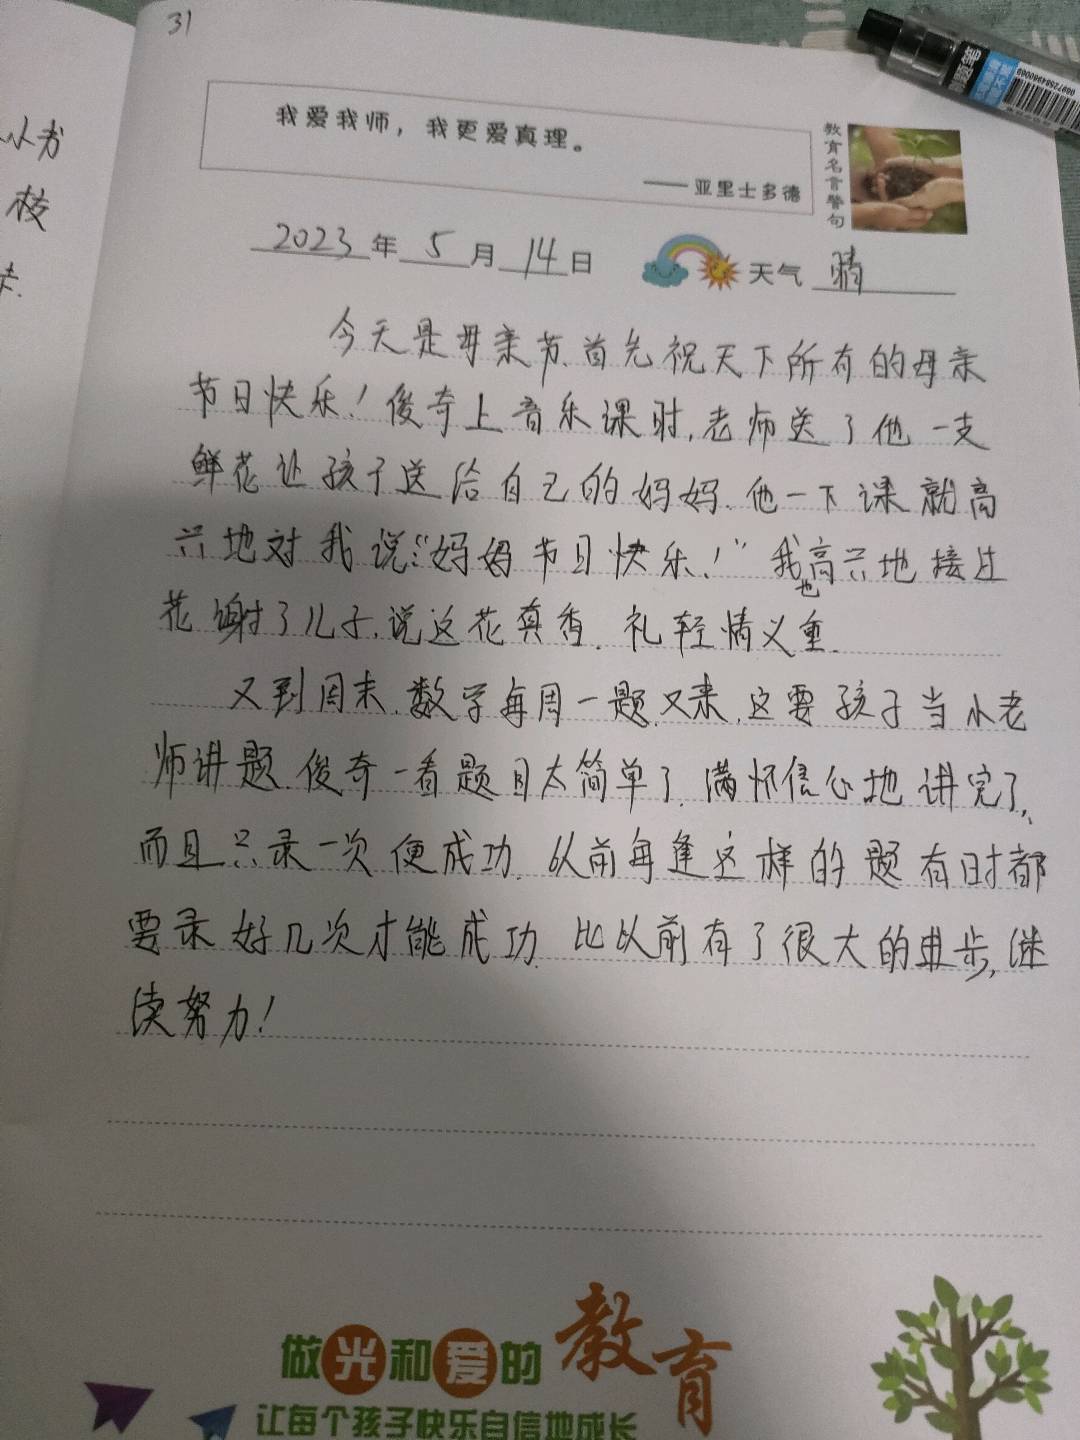 31
我爱我师，我更爱真理。
——亚里士多德
教育名言警句
2023年5月14日 天气 晴
今天是母亲节.首先祝天下所有的母亲
节日快乐！俊奇上音乐课时,老师送了他一支
鲜花让孩子送给自己的妈妈.他一下课就高
兴地对我说:“妈妈节日快乐!”我也高兴地接过
花谢了儿子,说这花真香.礼轻情义重.
又到周末.数学每周一题又来,这要孩子当小老
师讲题.俊奇一看题目太简单了.满怀信心地讲完了,
而且只录一次便成功.以前每逢这样的题有时都
要录好几次才能成功.比以前有了很大的进步,继
续努力!
做光和爱的教育
让每个孩子快乐自信地成长